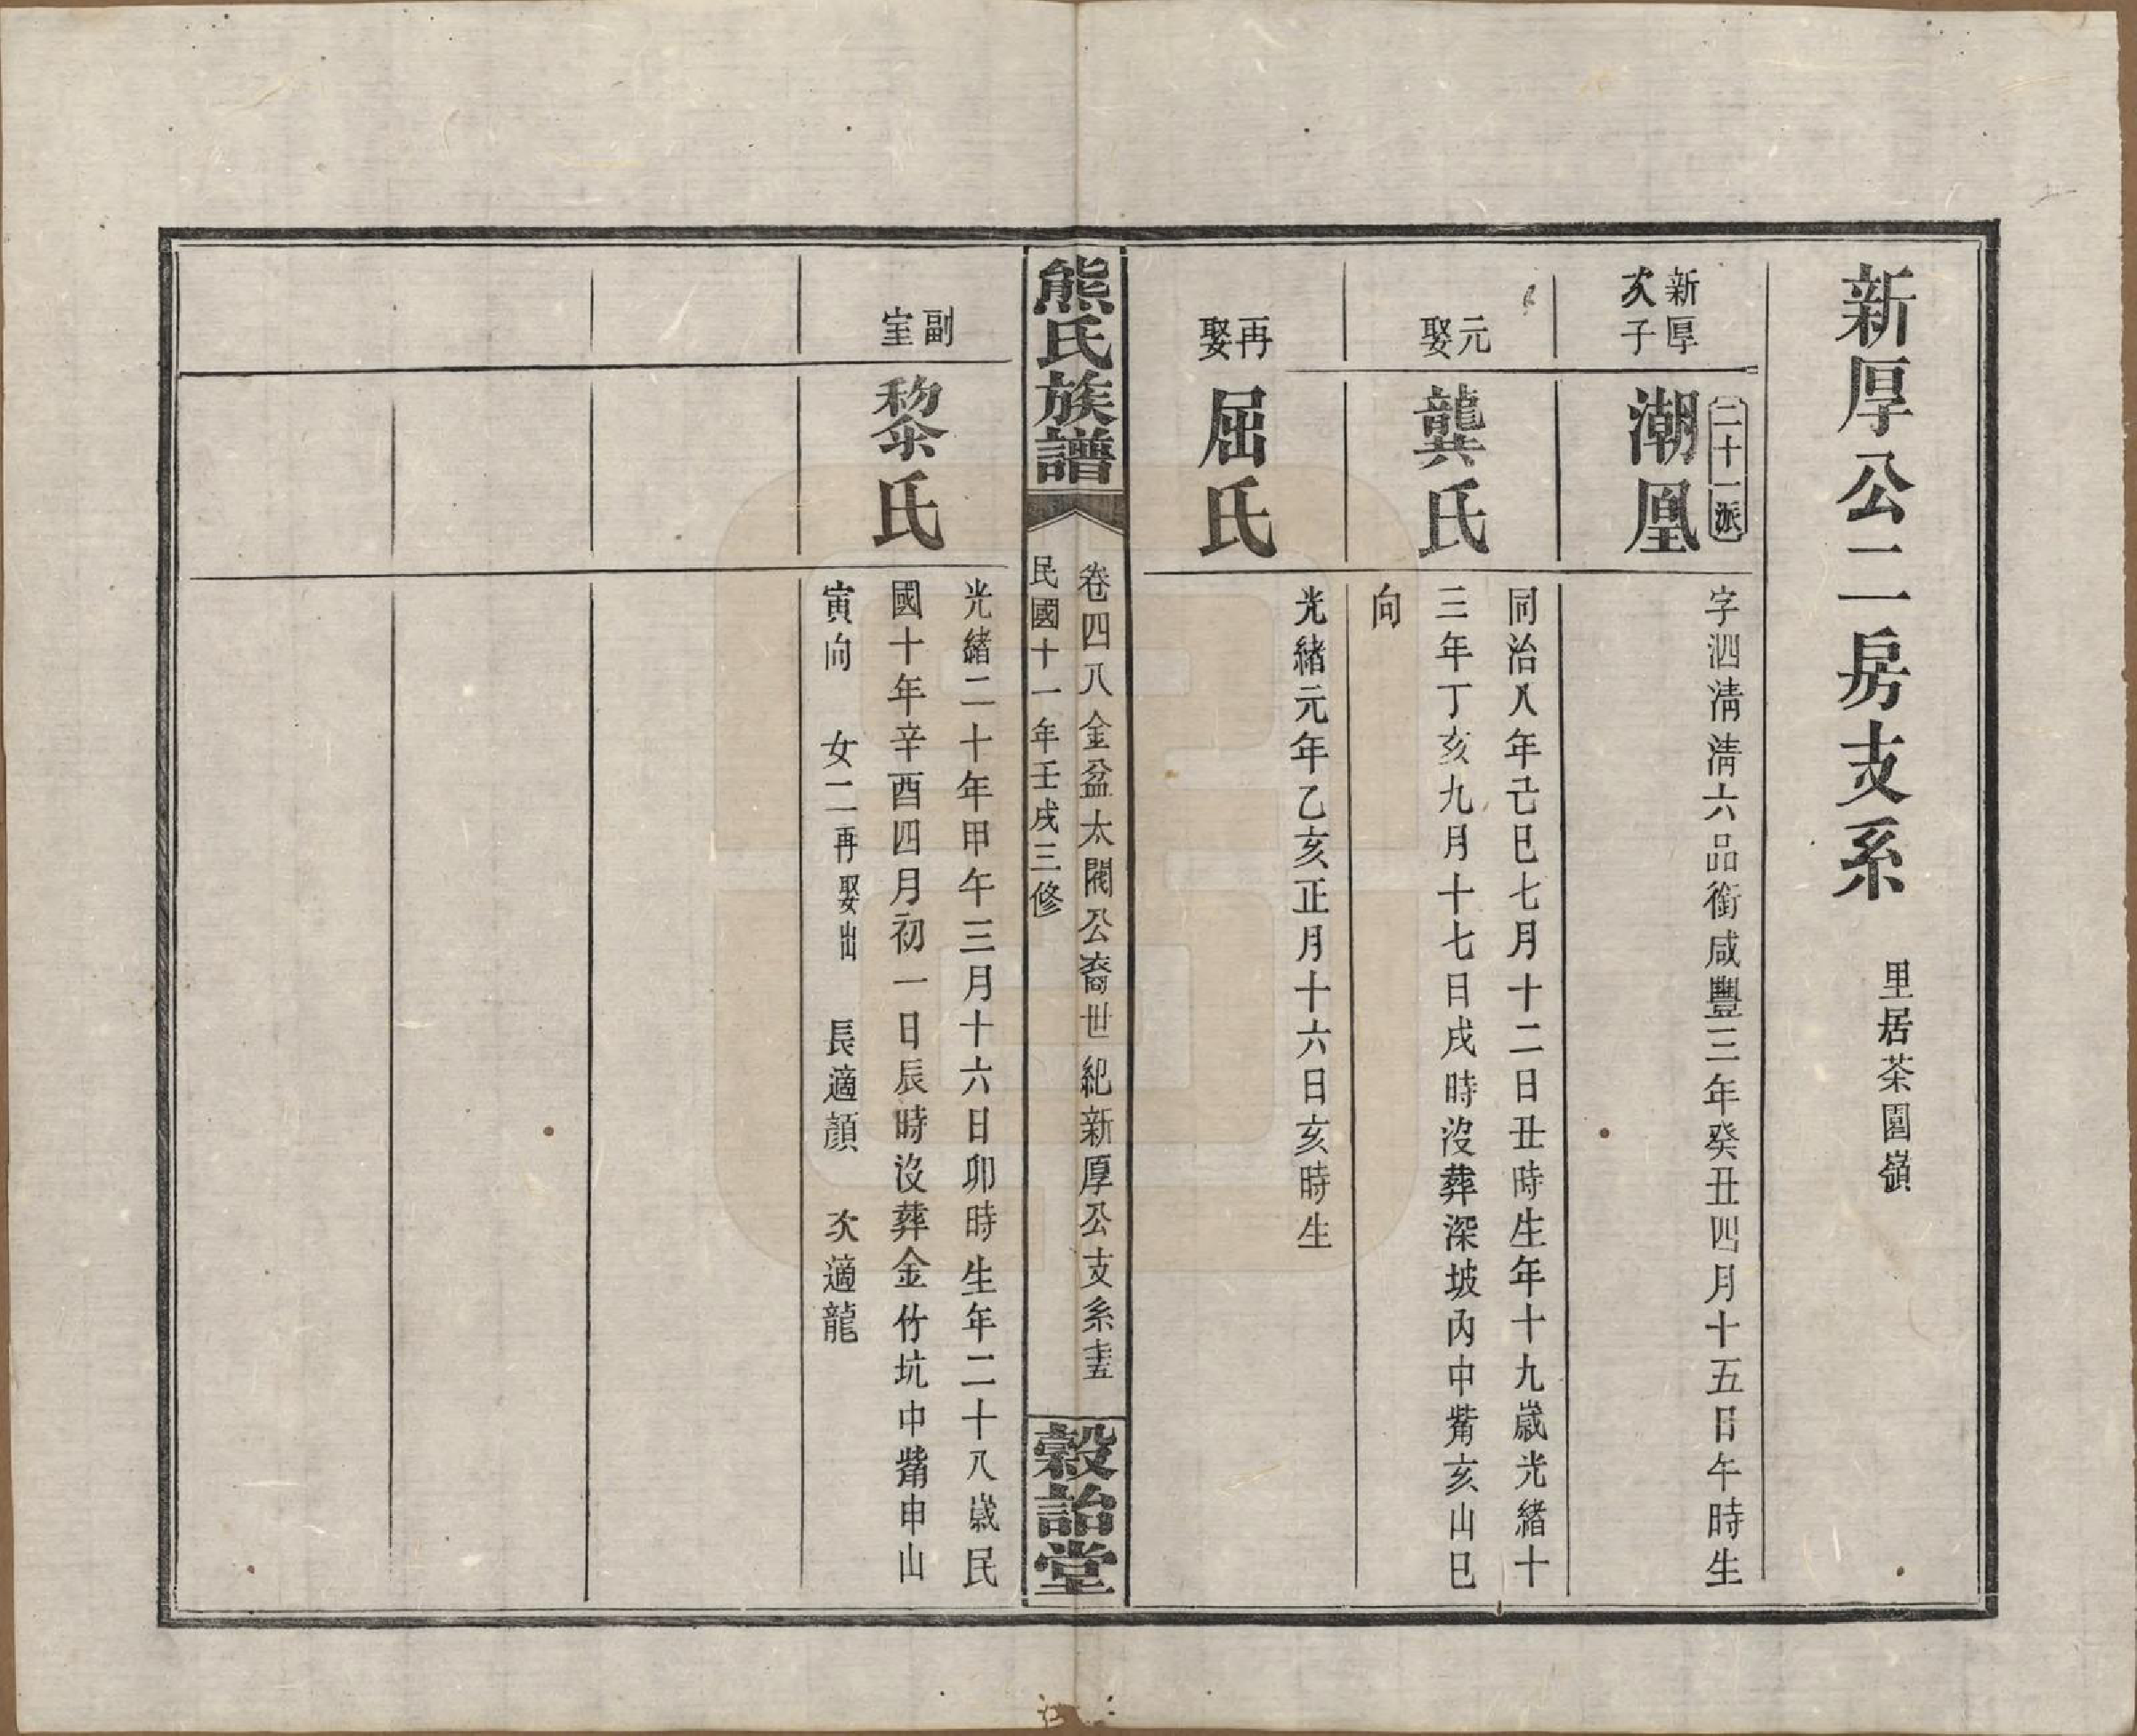 新厚公二房支系 里居茶園嶺
新厚
次子
二十一派
潮凰
字泗清清六品銜咸豐三年癸丑四月十五日午時生
元
娶
龔氏
同治八年己巳七月十二日丑時生年十九歲光緒十
三年丁亥九月十七日戌時沒葬深坡內中觜亥山巳
向
再
娶
屈氏
光緒元年乙亥正月十六日亥時生
熊氏族譜
卷四八金盆太閣公裔世紀新厚公支系
民國十一年壬戌三修
穀詒堂
副
室
黎氏
光緒二十年甲午三月十六日卯時生年二十八歲民
國十年辛酉四月初一日辰時沒葬金竹坑中觜申山
寅向 女二再娶出 長適顏 次適龍